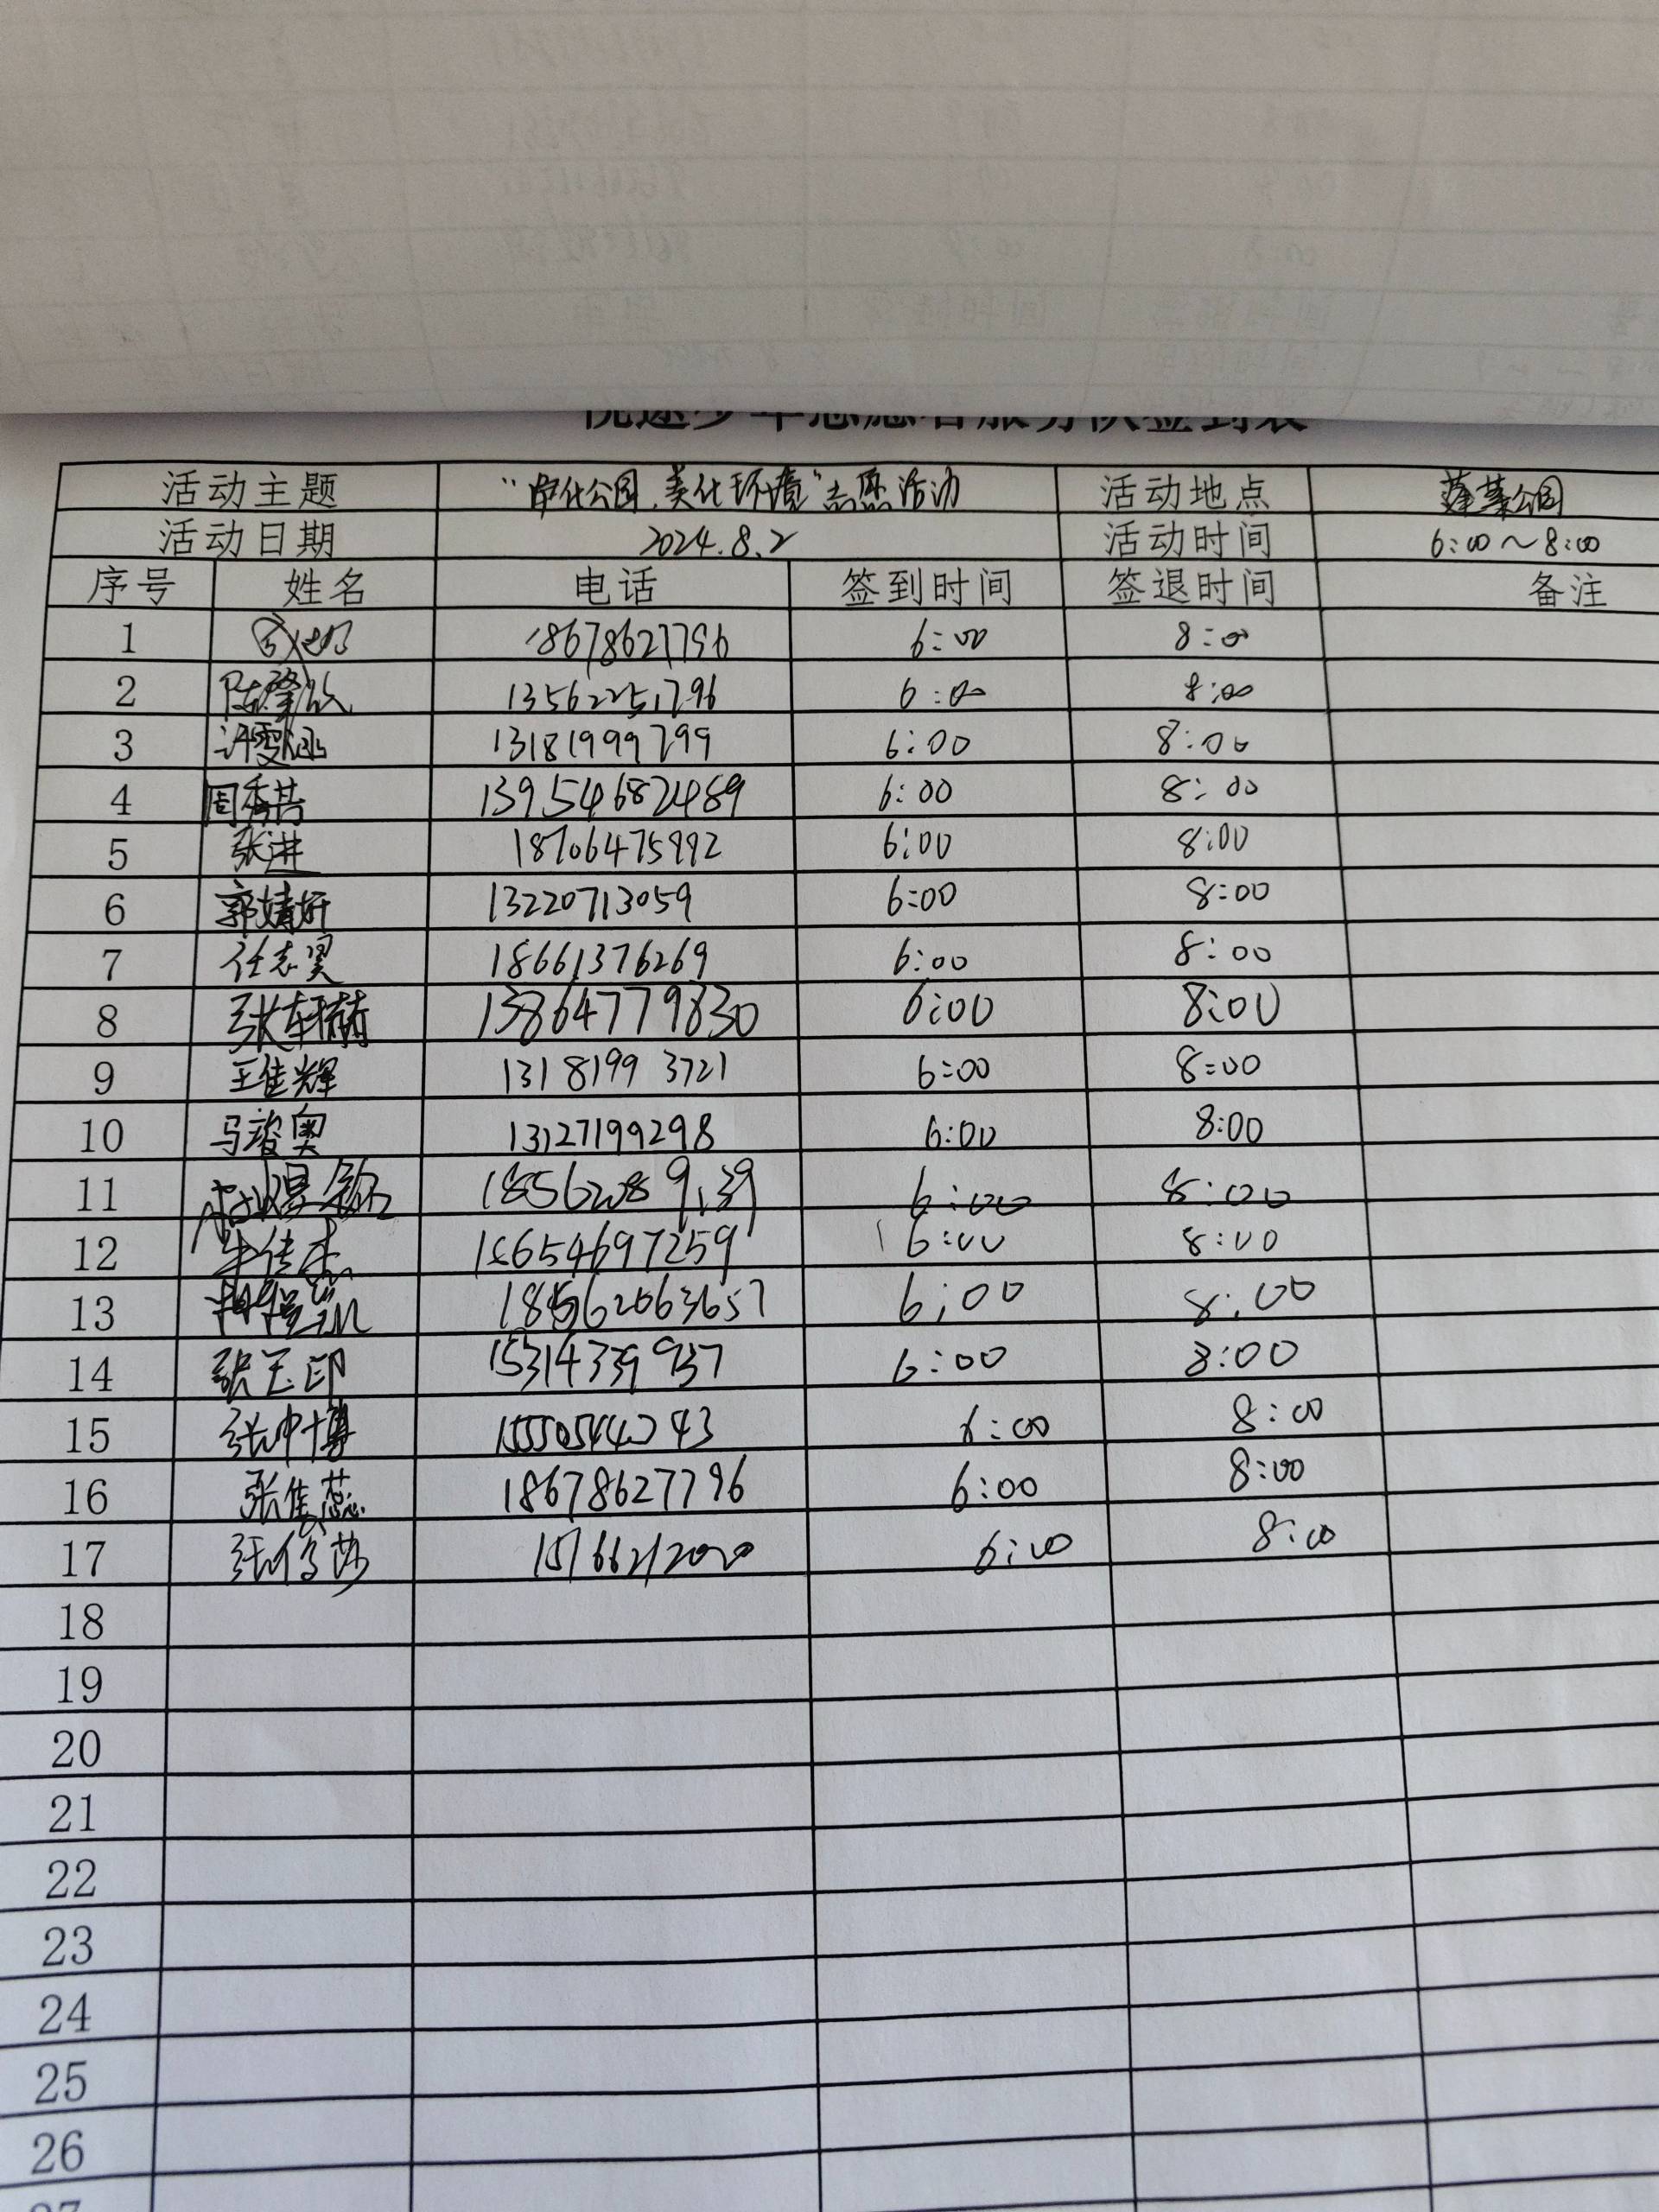 活动主题 "净化公园、美化环境"志愿活动 活动地点 蓬莱公园
活动日期 2024.8.2 活动时间 6:00～8:00
序号 姓名 电话 签到时间 签退时间 备注
1 18678627796 6:00 8:00
2 13562251796 6:00 8:00
3 许雯涵 13181999799 6:00 8:00
4 周秀芸 139546872489 6:00 8:00
5 张进 18706475992 6:00 8:00
6 郭婧妍 13220713059 6:00 8:00
7 任志翼 18661376269 6:00 8:00
8 张轩赫 13864779830 6:00 8:00
9 王佳辉 13181993721 6:00 8:00
10 马浚奥 13127199298 6:00 8:00
11 6:00 8:00
12 18654697259 6:00 8:00
13 6:00 8:00
14 张玉印 15314339937 6:00 8:00
15 张中博 6:00 8:00
16 张佳蕊 18678627796 6:00 8:00
17 6:00 8:00
18
19
20
21
22
23
24
25
26